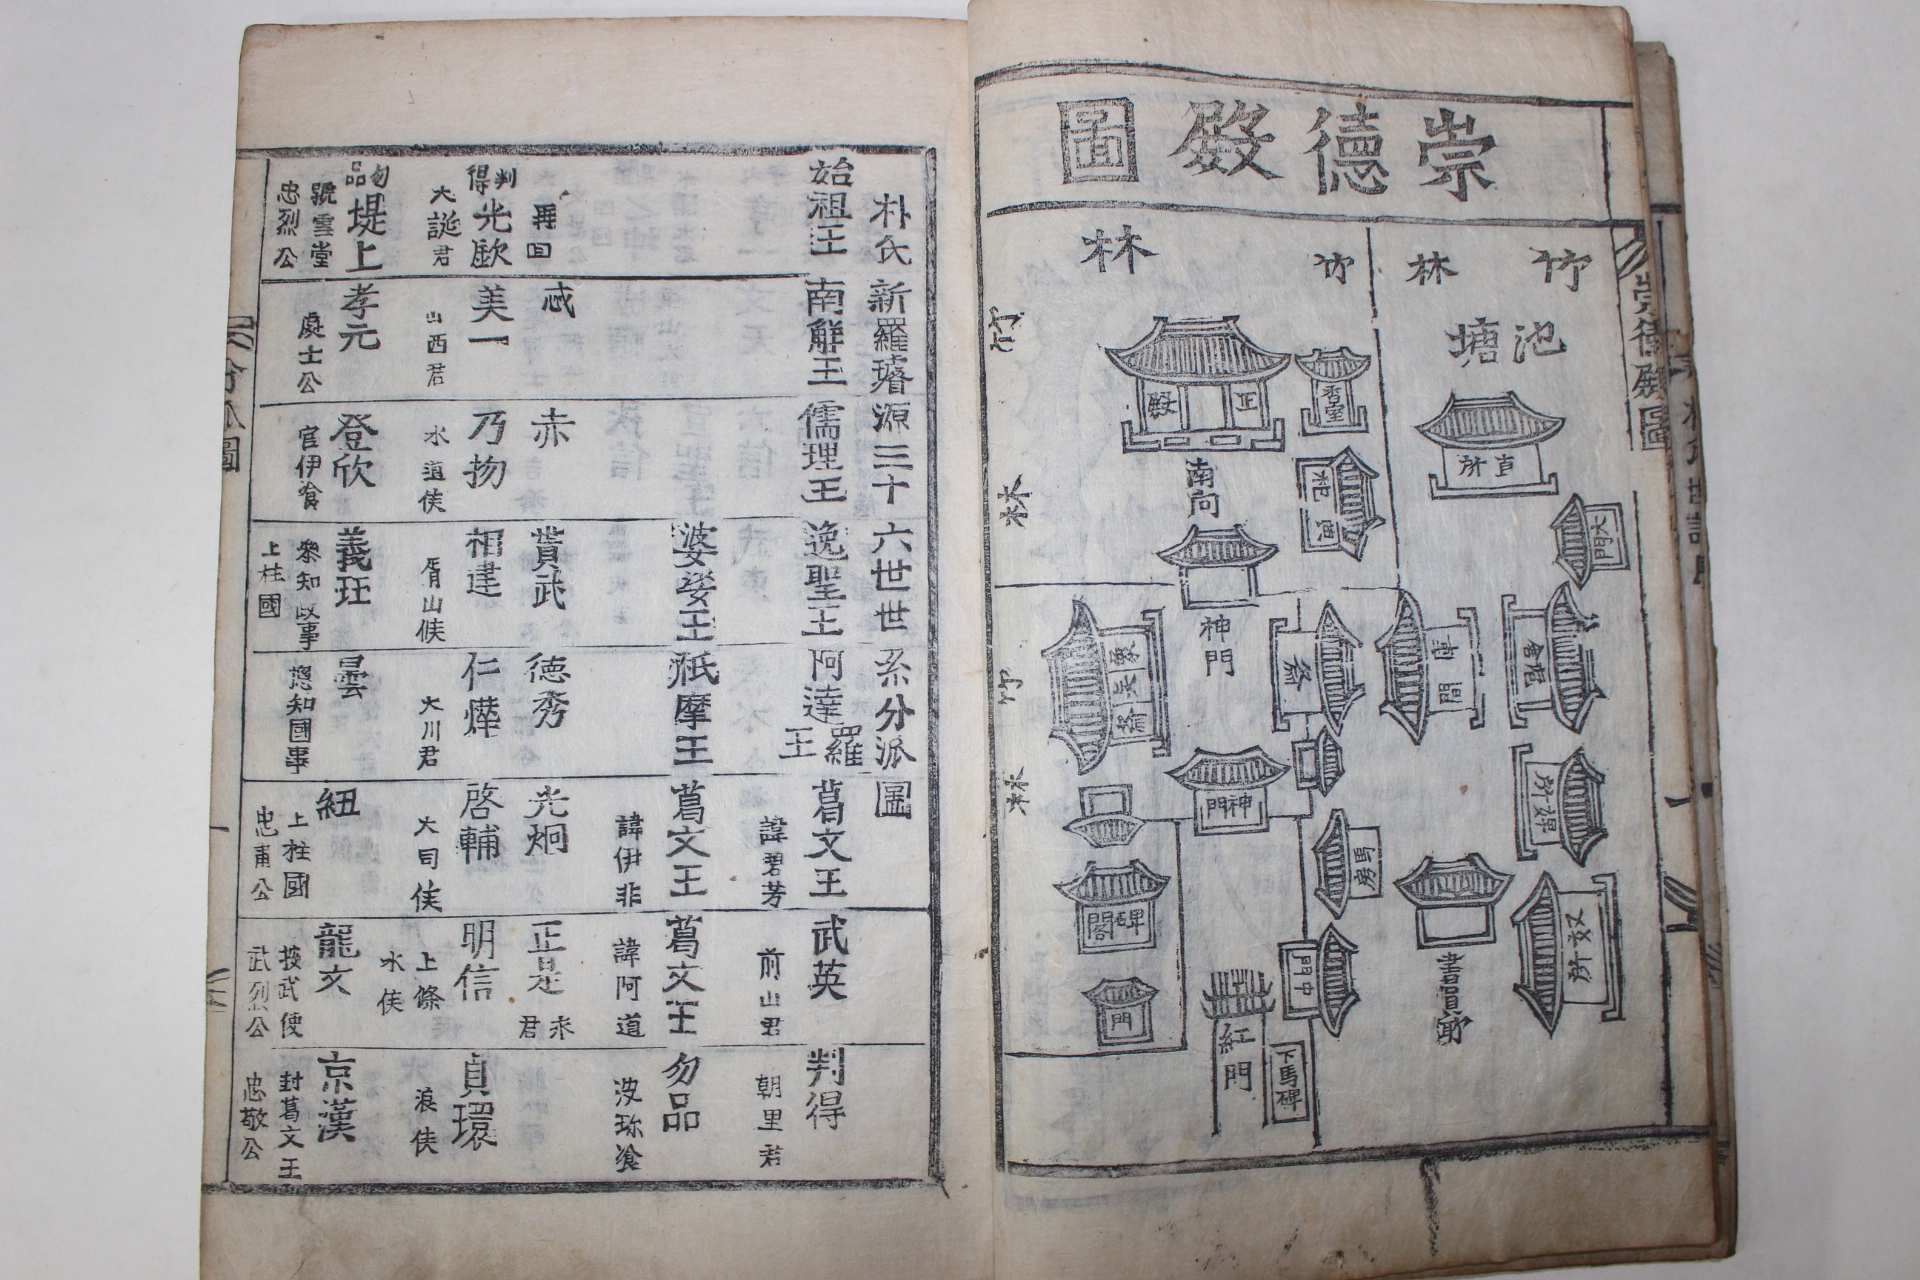 崇德殿圖
竹林
竹林
池塘
直所
大門
香室
正殿
南向
神門
會舘
庫間
神門
碑閣
門
馬房
中門
奴所
紅門
下馬碑
竹
林
竹
林
崇德殿圖
朴氏新羅璿源三十六世世系分派圖
始祖王
南觧王
儒理王
逸聖王
阿達羅王
葛文王
諱碧芳
武英
前山君
判得
朝里君
婆娑王
祇摩王
葛文王
諱伊非
葛文王
諱阿道
勿品
波珎飡
再回
忒
赤
賁武
德秀
光炯
正是
君
判得
光歐
大誕君
美一
山西君
乃物
水道侯
相建
胥山侯
仁燁
大川君
啓輔
大司侯
明信
上條
水侯
貞環
浪侯
勿品
堤上
號雪堂
忠烈公
孝元
處士公
登欣
官伊飡
義玨
叅知政事
上柱國
曇
摠知國事
紐
上柱國
忠肅公
龍文
按武使
武烈公
京漢
封葛文王
忠敬公
分派圖
一